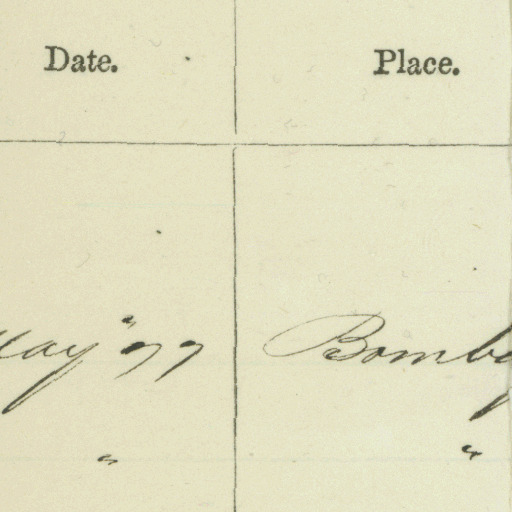 Date. Place.
May "77 Bombay
" "